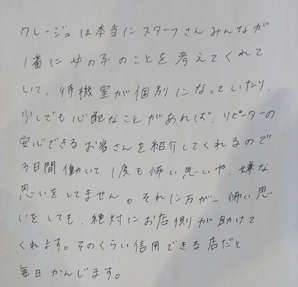 クレージュは本当にスタッフさんみんなが
1番に女の子のことを考えてくれて
いて、待機室が個別になっていたり、
少しでも心配なことがあれば、リピーターの
安心できるお客さんを紹介してくれるので
3日間働いて1度も怖い思いや、嫌な
思いをしてません。それに万が一怖い思
いをしても、絶対にお店側が助けて
くれます。そのくらい信用できる店だと
毎日かんじます。